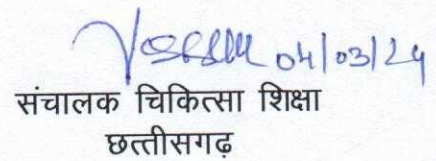 04/03/24
संचालक चिकित्सा शिक्षा
छत्तीसगढ़